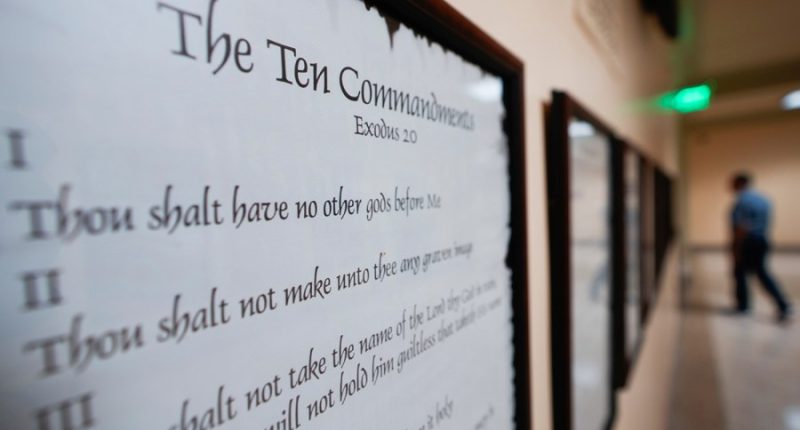 The Ten Commandments
Exodus 20
I
Thou shalt have no other gods before Me
II
Thou shalt not make unto thee any graven image
III
shalt not take the name of the Lord thy God in vain,
will not hold him guiltless that taketh his name
it holy